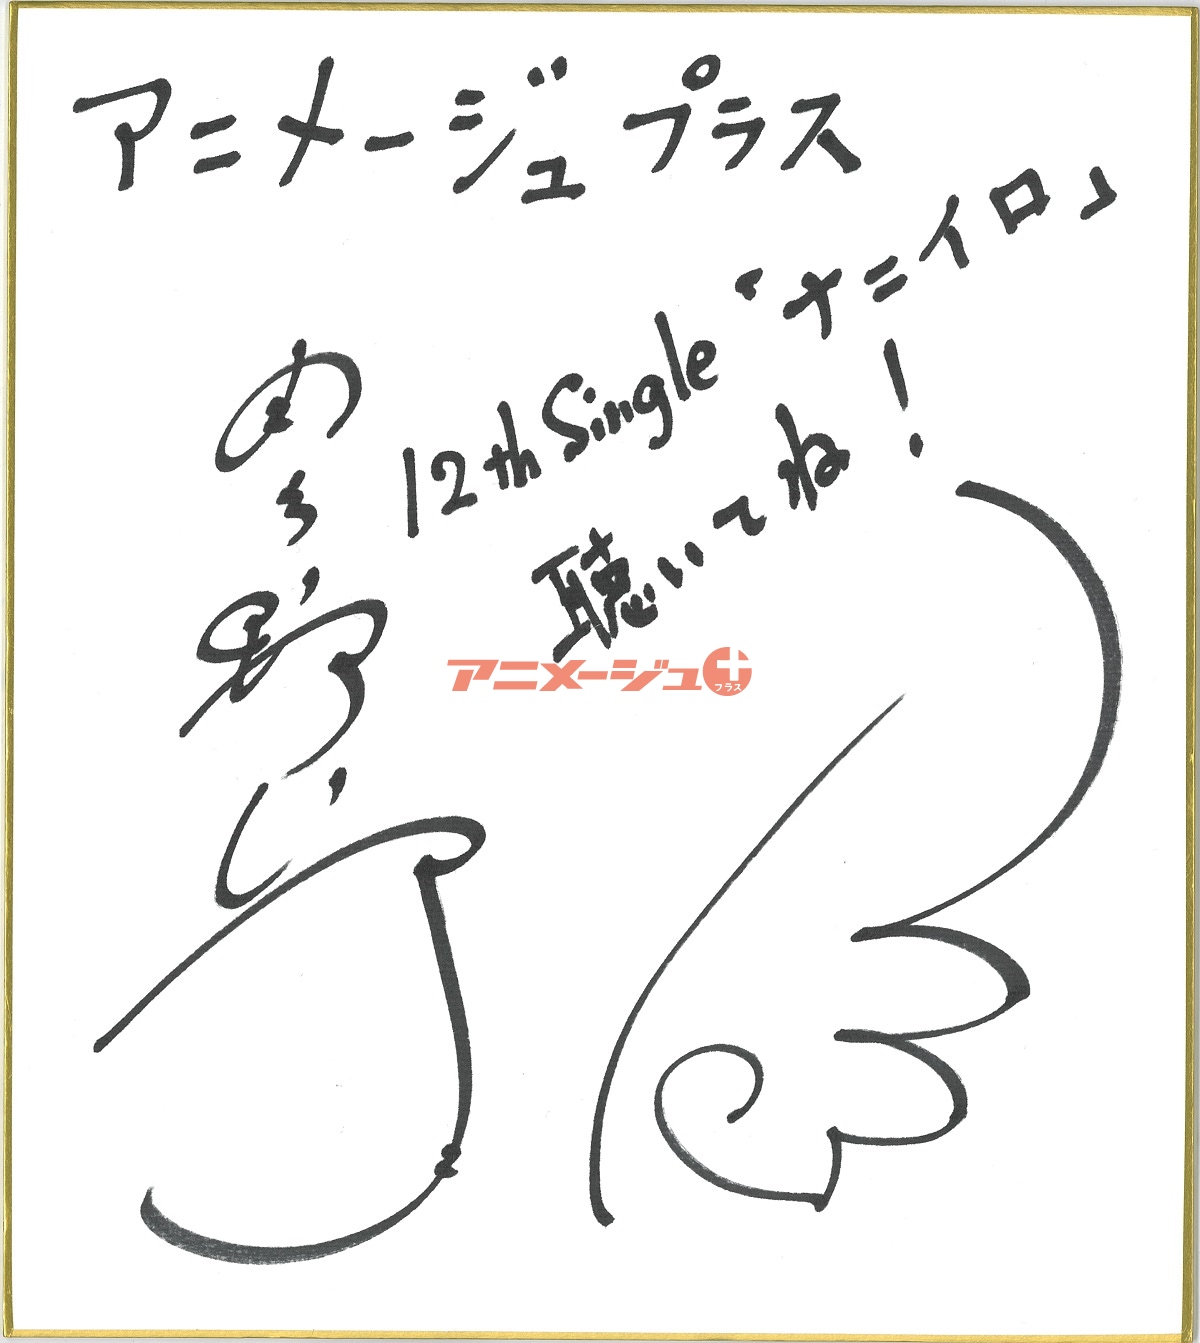 アニメージュプラス
12th Single「ナニイロ」
聴いてね!
アニメージュプラス